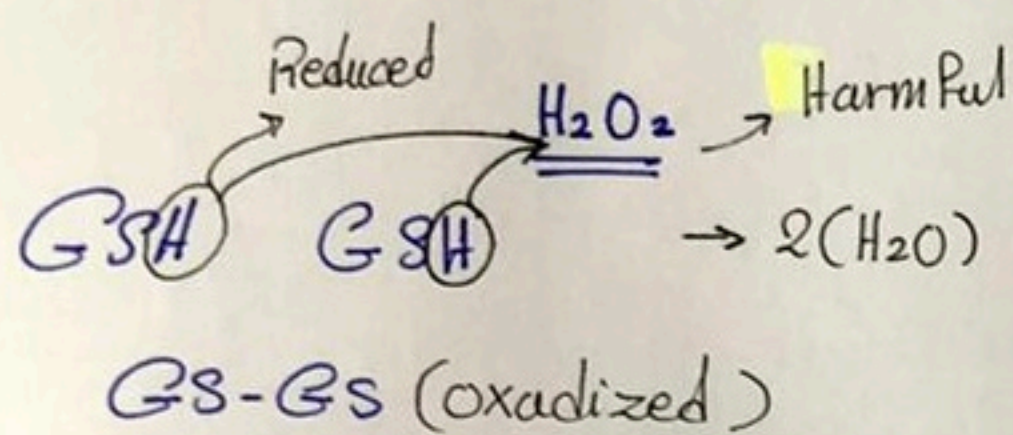 Reduced
H2O2 → Harmful
GSH GSH → 2(H2O)
GS-GS (oxadized)